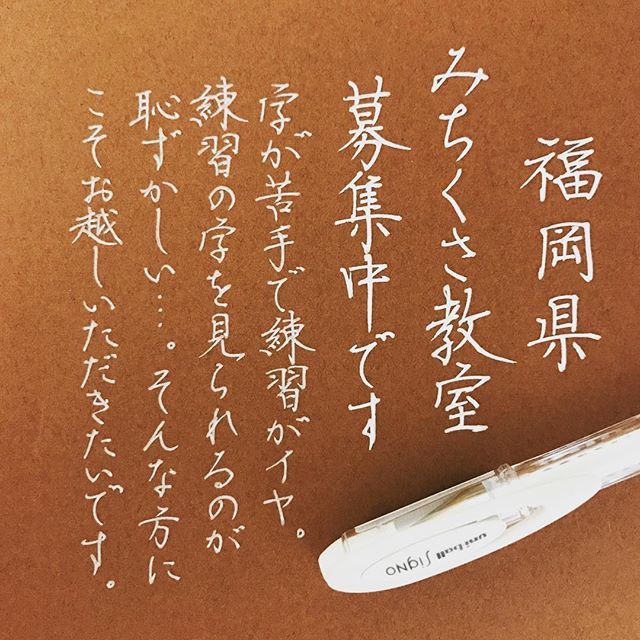 福岡県
みちくさ教室
募集中です
字が苦手で練習がイヤ。
練習の字を見られるのが
恥ずかしい…。そんな方に
こそお越しいただきたいです。
uni-ball Signo